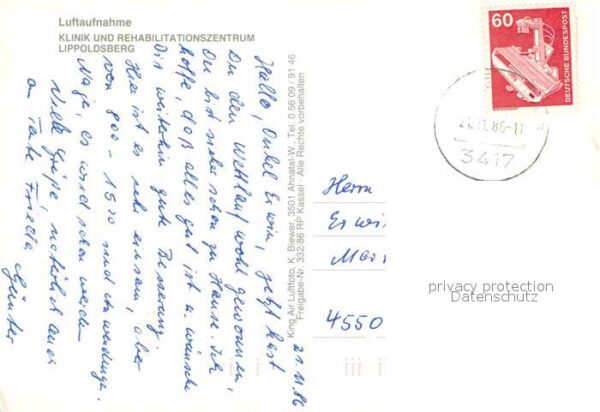 Luftaufnahme
KLINIK UND REHABILITATIONSZENTRUM
LIPPOLDSBERG
21.11.86
Hallo, Onkel Erwin, jetzt hast
Du den Wettlauf wohl gewonnen,
Du bist sicher schon zu Hause. Ich
hoffe, daß alles gut ist u. wünsche
Dir weiterhin gute Besserung.
Hier ist es sehr einsam, aber
von 800 - 1530 sind
Naja, es wird schon werden
Viele Grüße, natürlich auch
an Tante Frieda
Günter
King Air Luftfoto, K. Biewer, 3501 Ahnatal-W., Tel. 0 56 09 / 91 46
Freigabe-Nr. 332/86 RP Kassel - Alle Rechte vorbehalten
60
DEUTSCHE BUNDESPOST
21.11.86-11
3417
Herrn
Erwi
Mar
4550
privacy protection
Datenschutz